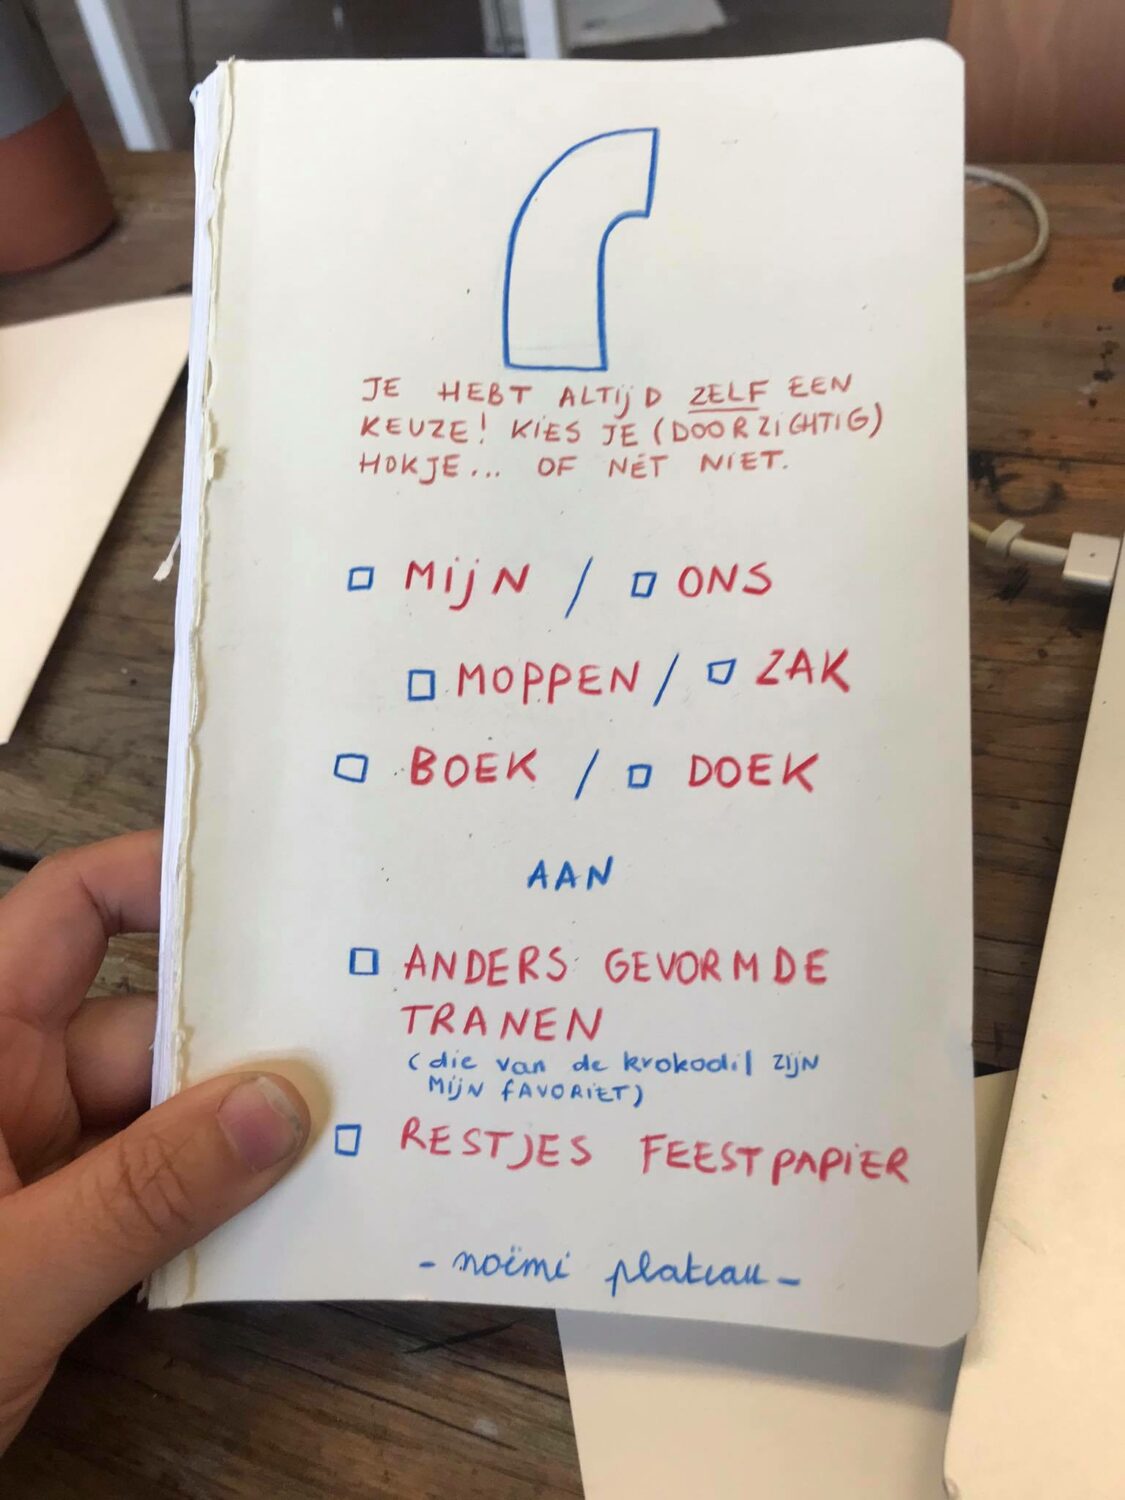 JE HEBT ALTIJD ZELF EEN
KEUZE! KIES JE (DOORZICHTIG)
HOKJE... OF NÉT NIET.
MIJN / ONS
MOPPEN / ZAK
BOEK / DOEK
AAN
ANDERS GEVORMDE
TRANEN
(die van de krokodil ZIJN
MIJN fAVORIET)
RESTJES FEESTPAPIER
- noëmi plateau -